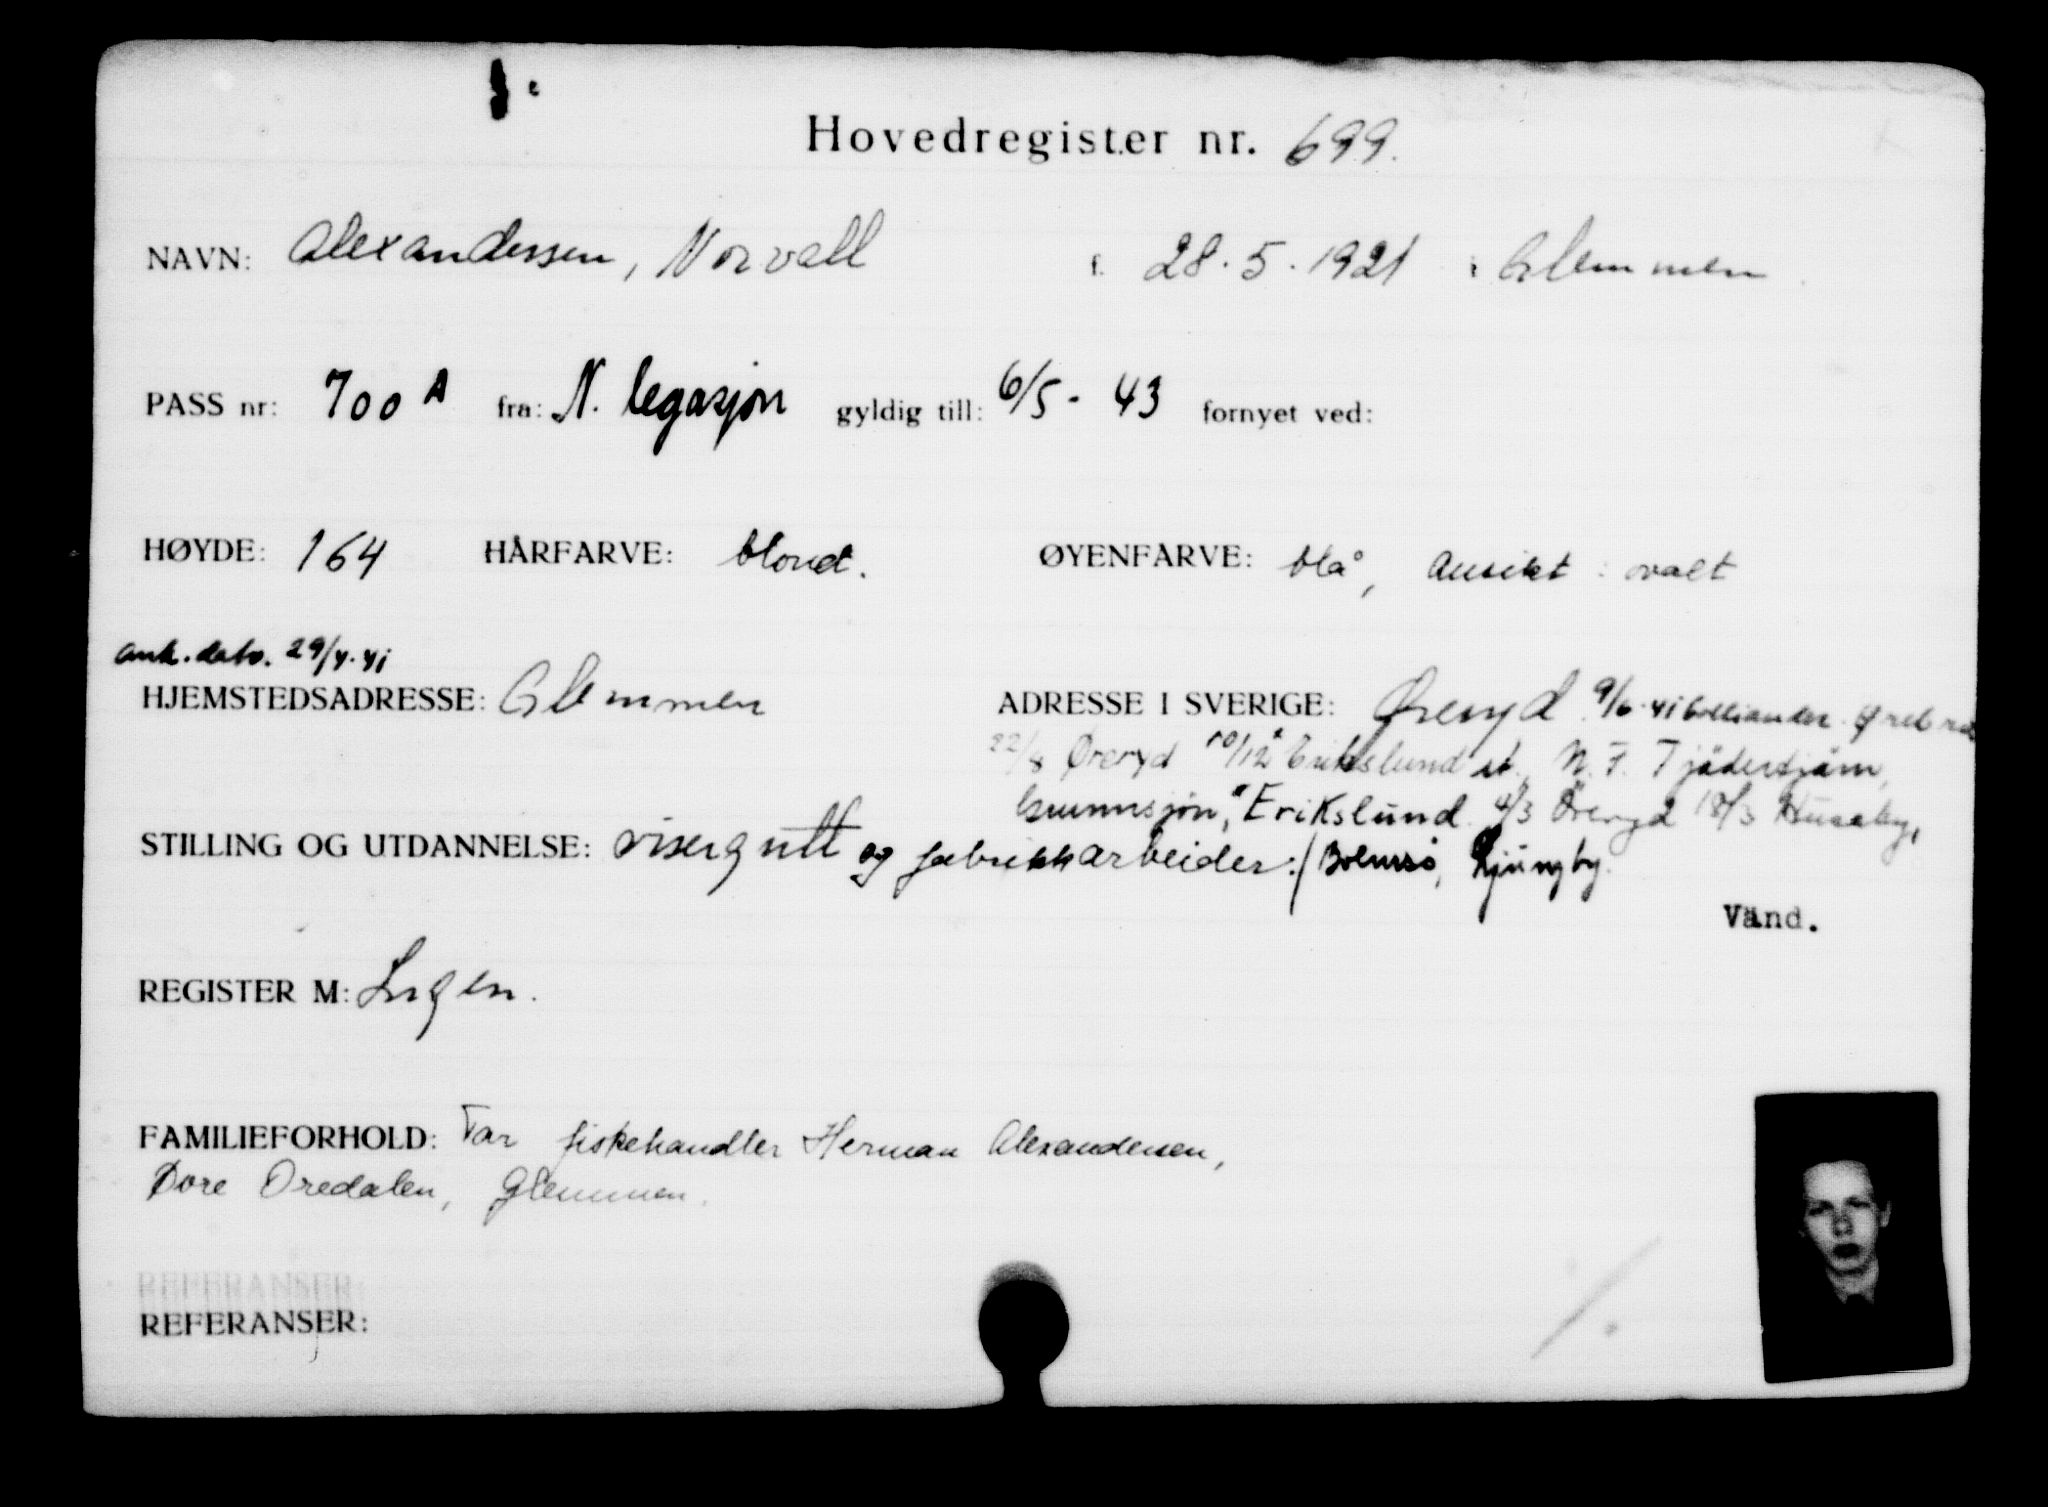 Hovedregister nr. 699.
NAVN: Alexandersen, Norvall f. 28.5.1921 i Glemmen
PASS nr: 700 A fra: N. legasjon gyldig till: 6/5 - 43 fornyet ved:
HØYDE: 164 HÅRFARVE: blond. ØYENFARVE: blå, Ansikt: ovalt
ank. dato. 29/4-41
HJEMSTEDSADRESSE: Glemmen ADRESSE I SVERIGE: Øreryd 9/6-41
22/8 Øreryd 10/12 Erikslund st. N. F. Tjädertjärn,
Grunnsjön, Erikslund. 4/3 Öreryd 18/3 Husaby,
STILLING OG UTDANNELSE: visergutt og fabrikkarbeider./ Ljungby.
Vänd.
REGISTER M: Ingen.
FAMILIEFORHOLD: Far fiskehandler Herman Alexandersen,
Øvre Oredalen, Glemmen.
REFERANSER:
REFERANSER: